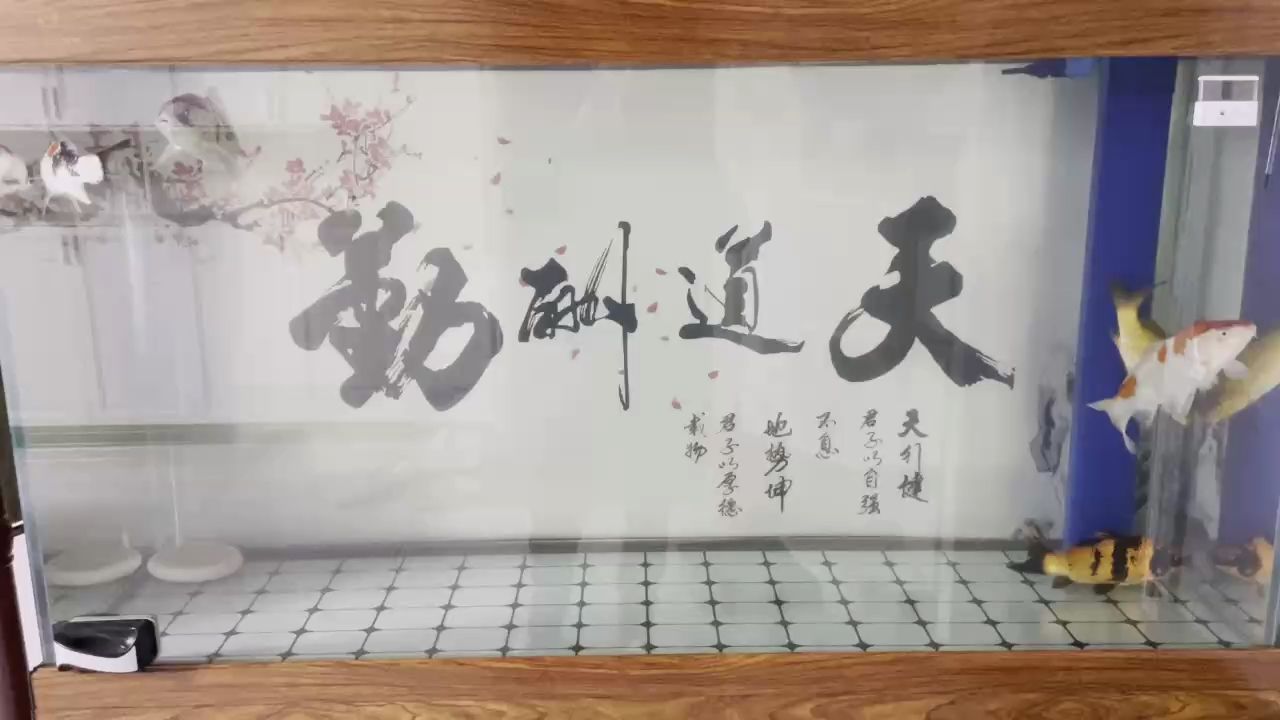 天道酬勤
天行健
君子以自强
不息
地势坤
君子以厚德
载物